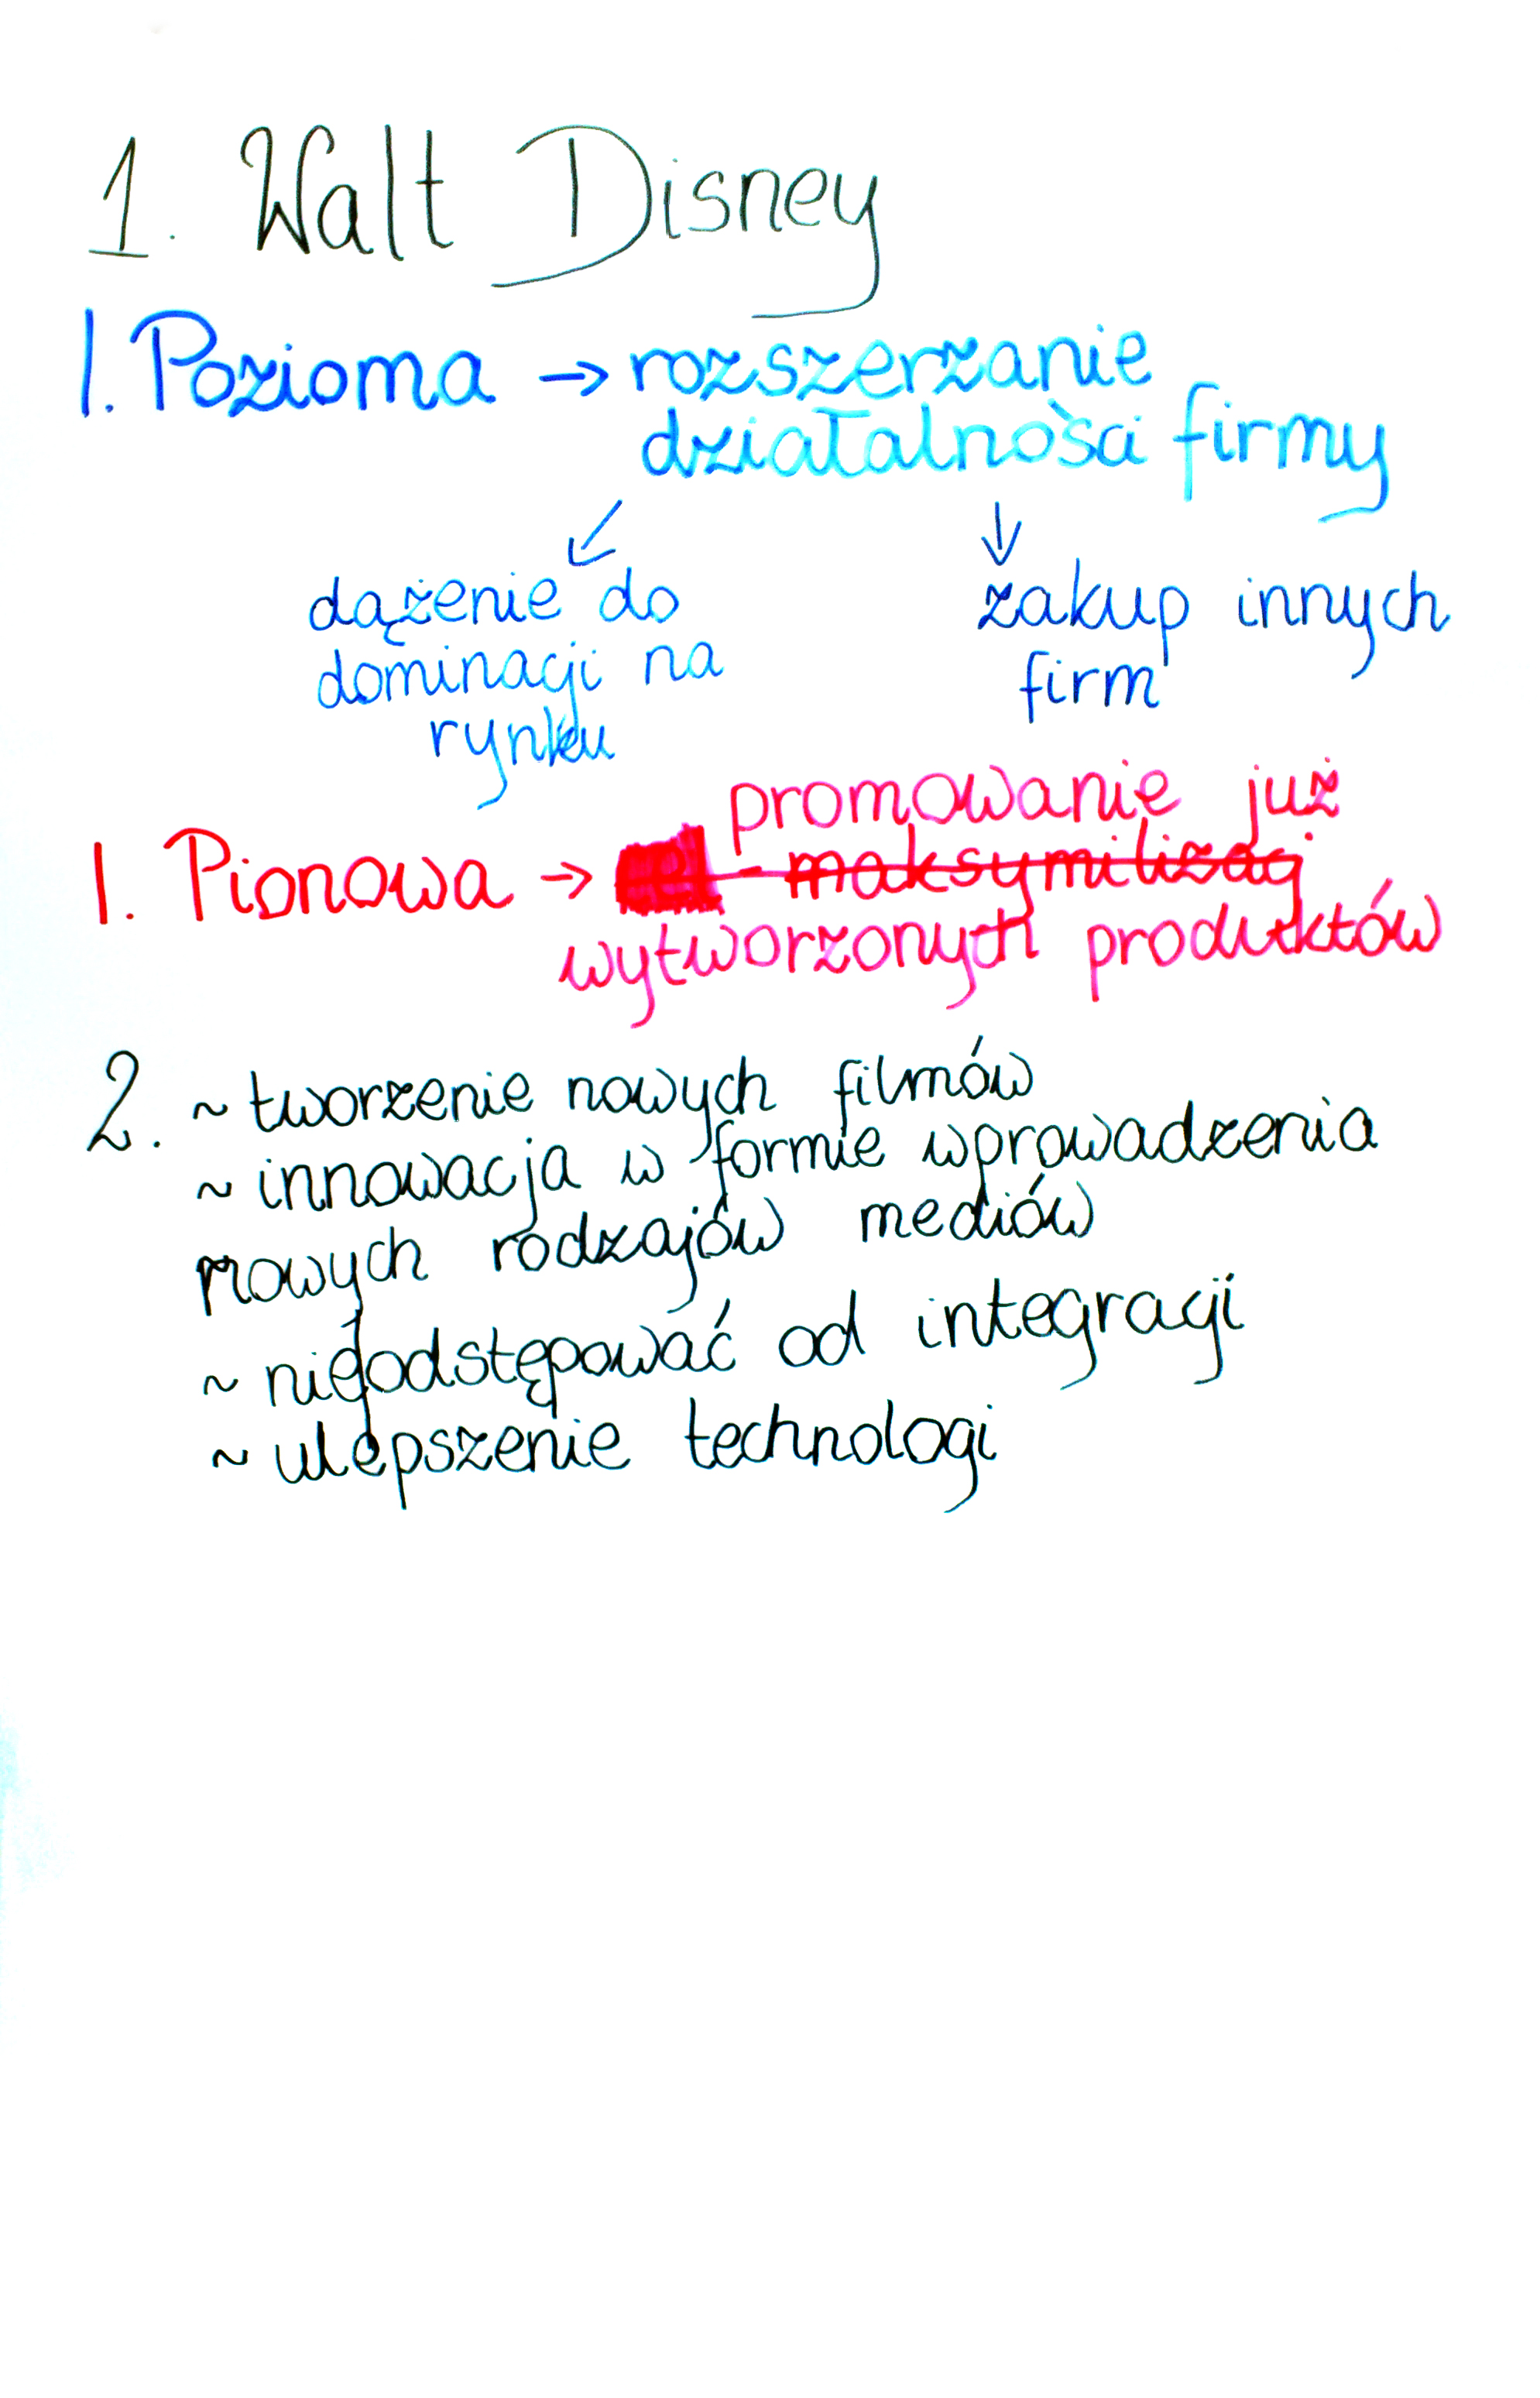 1. Walt Disney
I. Pozioma → rozszerzanie
działalności firmy
dążenie do
dominacji na
rynku
zakup innych
firm
promowanie już
I. Pionowa → - maksymilizacj
wytworzonych produktów
2. ~ tworzenie nowych filmów
~ innowacja w formie wprowadzenia
nowych rodzajów mediów
~ nieodstępować od integracji
~ ulepszenie technologi